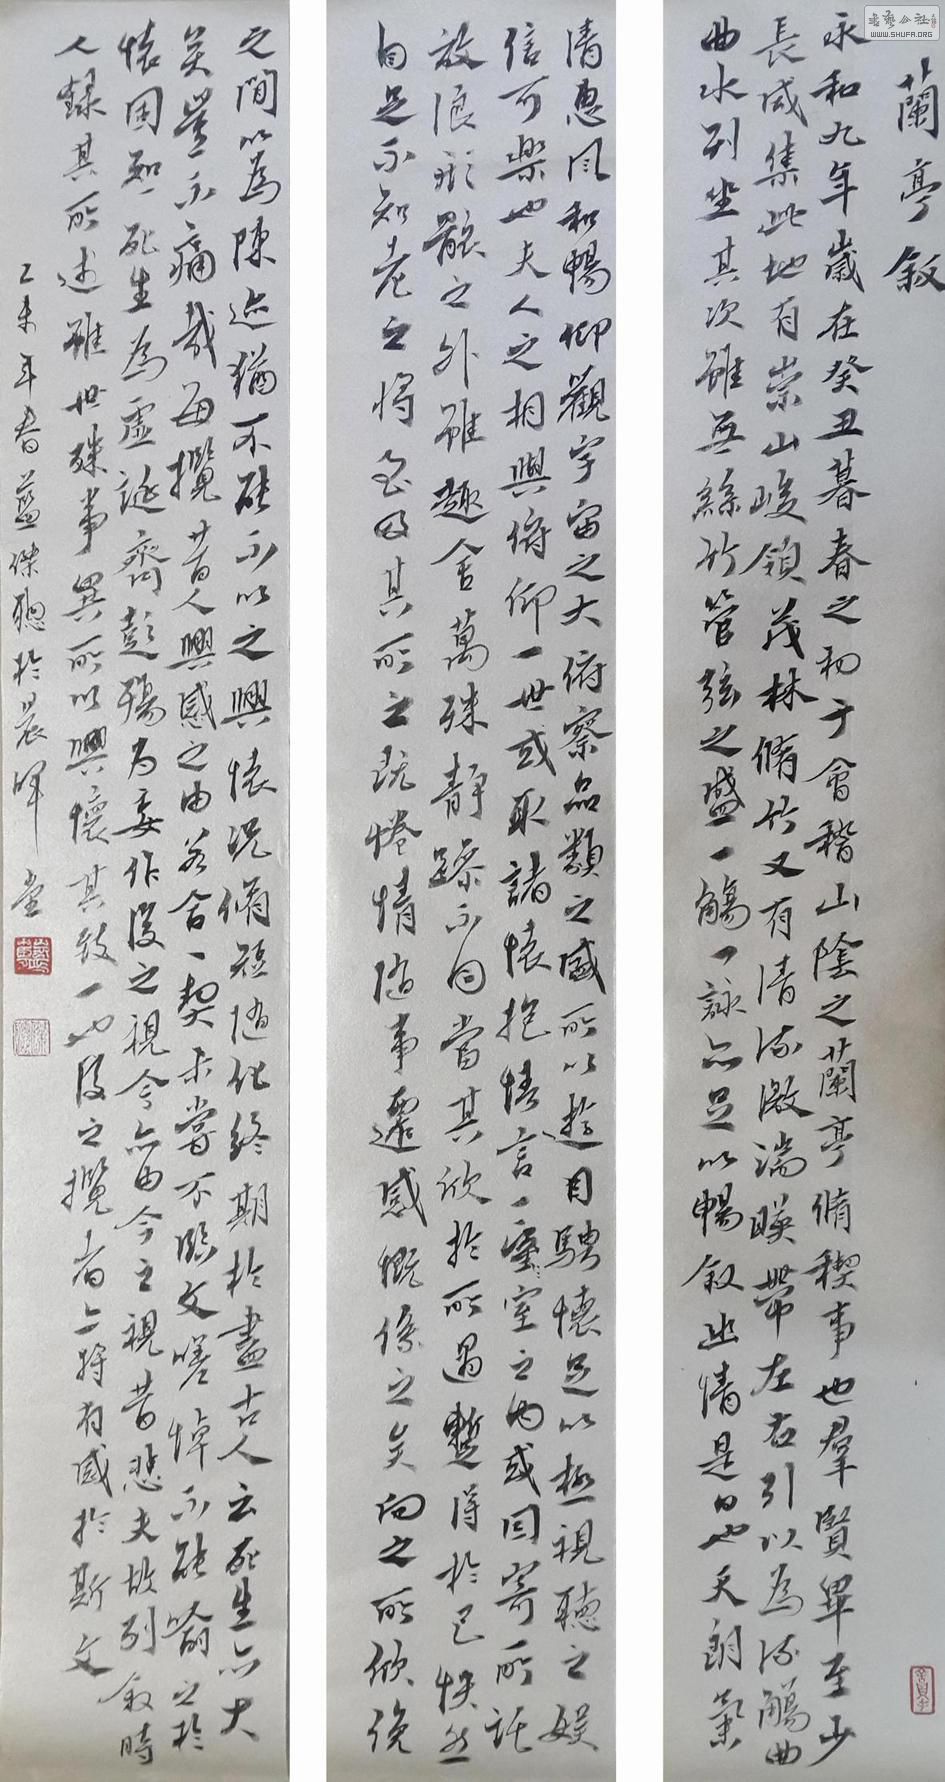 書藝公社
WWW.SHUFA.ORG
蘭亭叙
永和九年歲在癸丑暮春之初于會稽山陰之蘭亭脩稧事也羣賢畢至少
長咸集此地有崇山峻領茂林脩竹又有清流激湍暎帶左右引以為流觴曲
曲水列坐其次雖無絲竹管弦之盛一觴一詠亦足以暢叙幽情是日也天朗氣
清惠風和暢仰觀宇宙之大俯察品類之盛所以遊目騁懷足以極視聽之娛
信可樂也夫人之相與俯仰一世或取諸懷抱悟言一室之內或因寄所託
放浪形骸之外雖趣舍萬殊靜躁不同當其欣於所遇暫得於己怏然
自足不知老之將至及其所之既惓情隨事遷感慨係之矣向之所欣俛
之間以為陳迹猶不能不以之興懷況脩短隨化終期於盡古人云死生亦大
矣豈不痛哉每攬昔人興感之由若合一契未嘗不臨文嗟悼不能喻之於
懷固知一死生為虛誕齊彭殤為妄作後之視今亦由今之視昔悲夫故列叙時
人錄其所述雖世殊事異所以興懷其致一也後之攬者亦將有感於斯文
乙未年春藍傑聰於晨暉堂